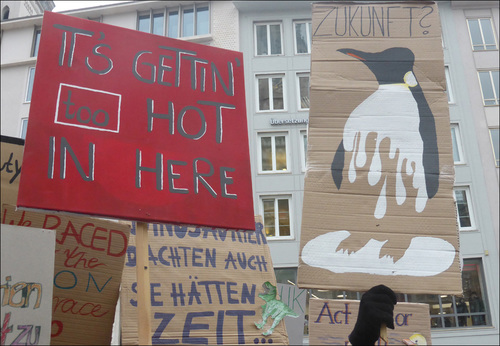 IT'S GETTIN'
too HOT
IN HERE
ZUKUNFT?
RACED
the
ON
race
DACHTEN AUCH
SIE HÄTTEN
ZEIT...
Act
or